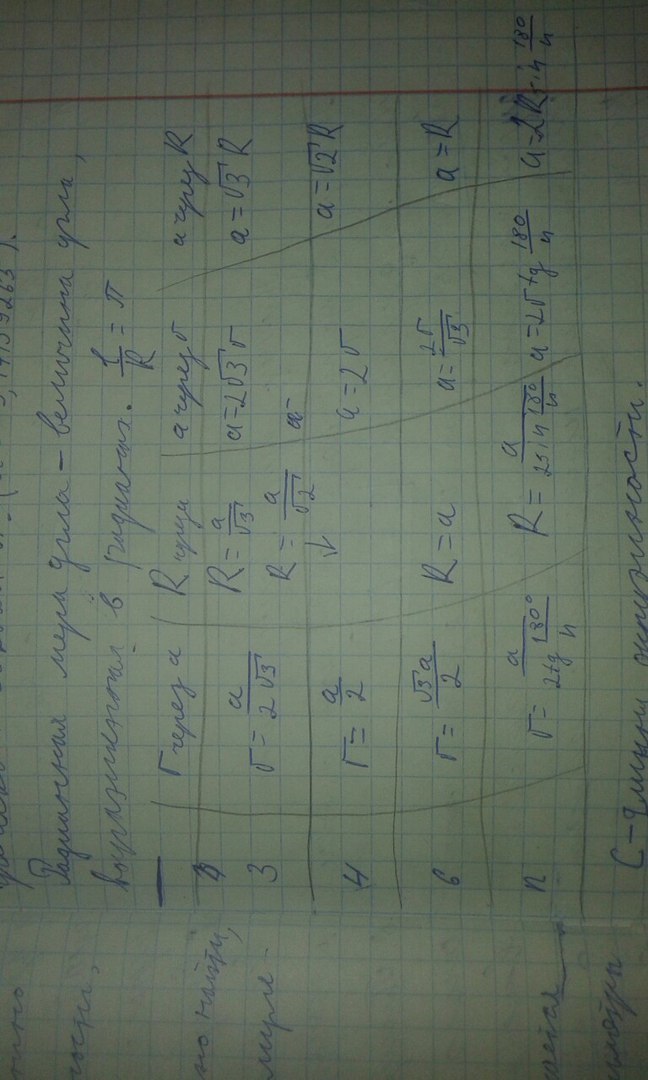 3,14159263).
Радианная мера угла – величина угла,
выраженная в радианах. l/R = π
r через a R через a через r a через R
3 r = a/(2√3) R = a/√3 a = 2√3 r a = √3 R
4 r = a/2 R = a/√2 a = 2r a = √2 R
6 r = √3a/2 R = a a = 2r/√3 a = R
n r = a/(2tg 180°/n) R = a/(2sin 180°/n) a = 2r tg 180/n a = 2R sin 180/n
C – длина окружности.
но найти,